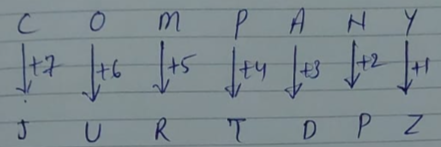 C O M P A N Y
+7 +6 +5 +4 +3 +2 +1
J U R T D P Z